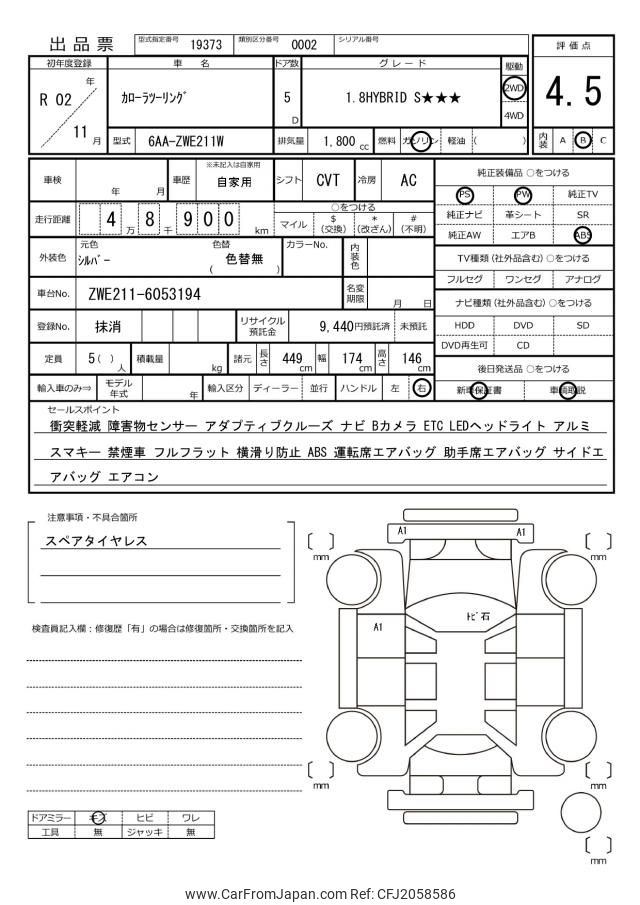 出品票 型式指定番号 19373 類別区分番号 0002 シリアル番号
評価点
4.5
内装 A B C
初年度登録 車名 ドア数 グレード 駆動
R 02 年 11 月
カローラツーリング 5 D 1.8HYBRID S★★★ 2WD 4WD
型式 6AA-ZWE211W 排気量 1,800 cc 燃料 ガソリン 軽油 ( )
車検 年 月 車歴 ※未記入は自家用 自家用 シフト CVT 冷房 AC
走行距離 4 万 8 千 9 0 0 km
○をつける
マイル $ (交換) * (改ざん) # (不明)
外装色 元色 シルバー 色替 ( 色替無 ) カラーNo. 内装色
車台No. ZWE211-6053194 名変期限 月 日
登録No. 抹消 リサイクル預託金 9,440円預託済 未預託
定員 5( )人 積載量 kg 諸元 長さ 449 cm 幅 174 cm 高さ 146 cm
輸入車のみ⇒ モデル年式 年 輸入区分 ディーラー 並行 ハンドル 左 右
純正装備品 ○をつける
PS PW 純正TV
純正ナビ 革シート SR
純正AW エアB ABS
TV種類 (社外品含む) ○をつける
フルセグ ワンセグ アナログ
ナビ種類 (社外品含む) ○をつける
HDD DVD SD
DVD再生可 CD
後日発送品 ○をつける
新車保証書 車輌取説
セールスポイント
衝突軽減 障害物センサー アダプティブクルーズ ナビ Bカメラ ETC LEDヘッドライト アルミ
スマキー 禁煙車 フルフラット 横滑り防止 ABS 運転席エアバッグ 助手席エアバッグ サイドエ
アバッグ エアコン
注意事項・不具合箇所
スペアタイヤレス
検査員記入欄:修復歴「有」の場合は修復箇所・交換箇所を記入
ドアミラー キズ ヒビ ワレ
工具 無 ジャッキ 無
[ ] mm
A1 A1
[ ] mm
トビ石
A1
[ ] mm
[ ] mm
[ ] mm
www.CarFromJapan.com Ref: CFJ2058586